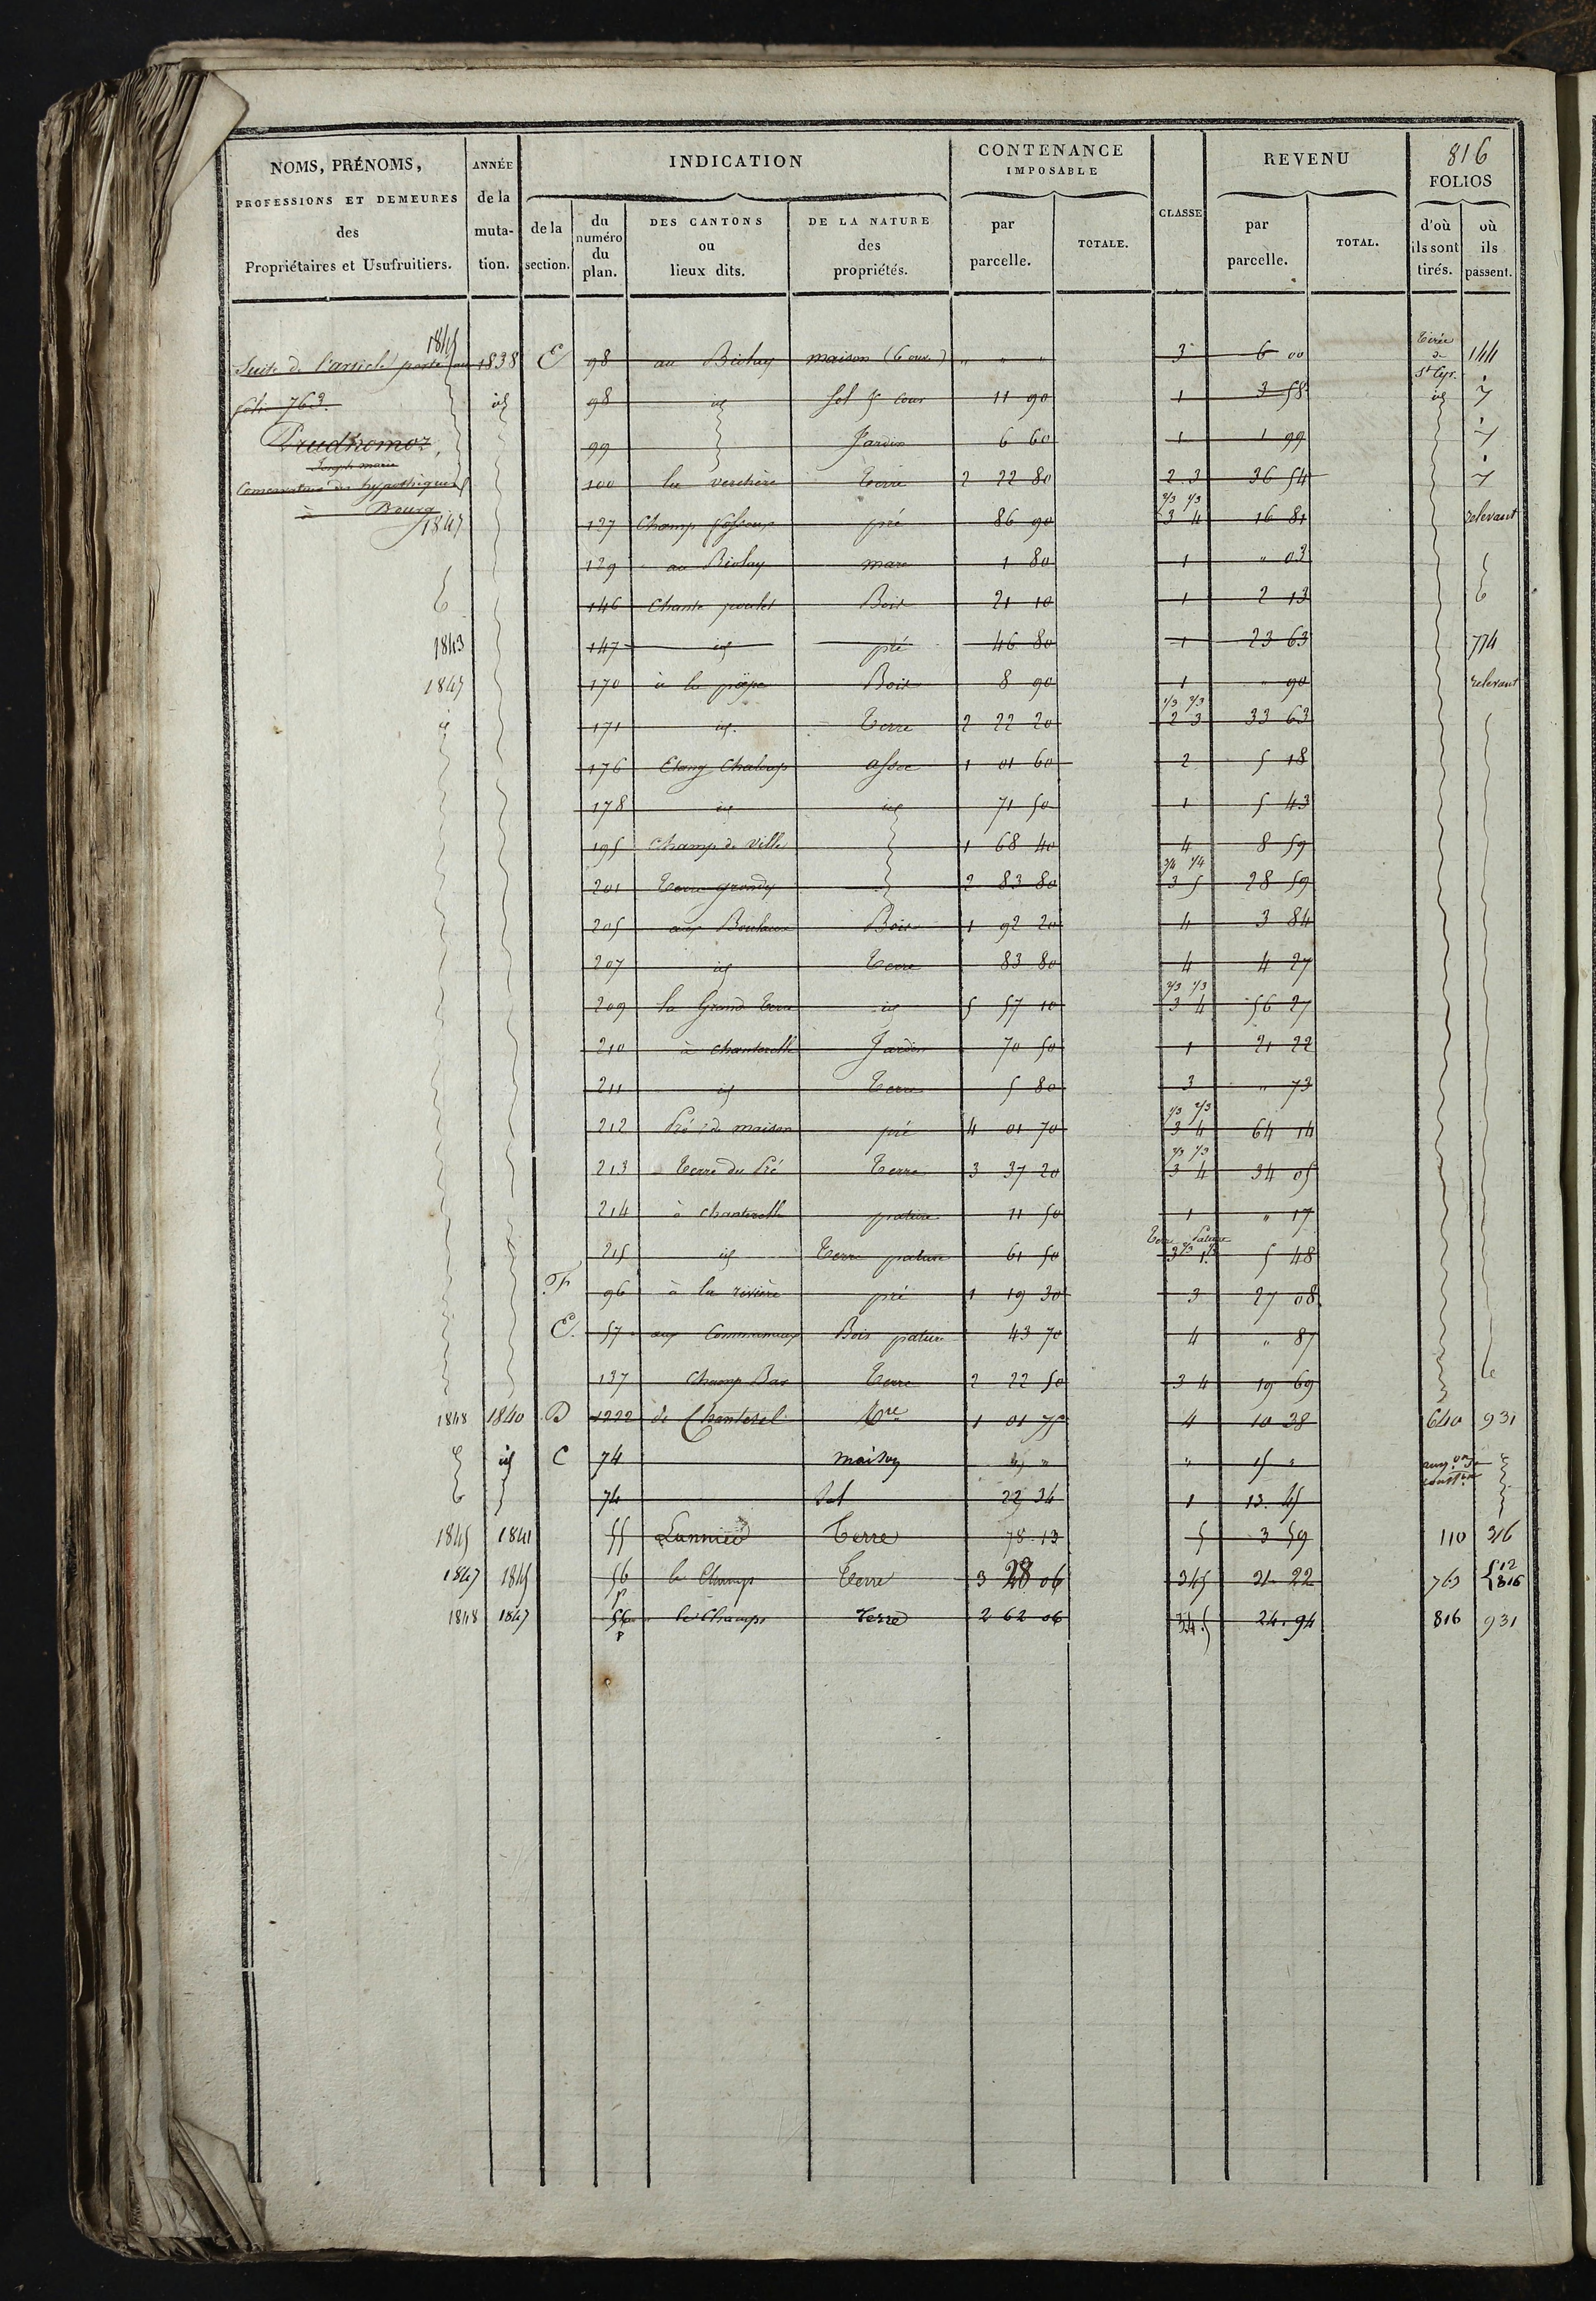 816
NOMS, PRÉNOMS, PROFESSIONS ET DEMEURES des Propriétaires et Usufruitiers.
ANNÉE de la muta- tion.
INDICATION
de la section.
du numéro du plan.
DES CANTONS ou lieux dits.
DE LA NATURE des propriétés.
CONTENANCE IMPOSABLE
par parcelle.
TOTALE.
CLASSE
REVENU
par parcelle.
TOTAL.
FOLIOS
d'où ils sont tirés.
où ils passent.
1845
Suite de l'article porté au 1838 E 98 au Biolay maison (6 ouv.) " " " 3 6 00 Tirée de St Cyr. 144
folio 763. id 98 id Sol & Cour 11 90 1 3 58 id
Prudhomoz, 99 Jardin 6 60 1 1 99
Joseph marie
Conservateur des hypothèques 100 la verchère Terre 2 22 80 2 3 36 54
à Bourg
2/3 1/3
1847 127 Champ pré 86 90 3 4 16 81 relevant
129 au Biolay mare 1 80 1 " 03
146 Chante poulet Bois 21 10 1 2 13
1843 147 id pré 46 80 1 23 63 774
1847 170 à la Bois 8 90 1 " 90 relevant
1/3 2/3
171 id. Terre 2 22 20 2 3 33 63
176 Etang assec 1 01 60 2 5 18
178 id id 71 50 1 5 43
195 Champ de Ville 1 68 40 4 8 59
3/4 1/4
201 Terre 2 83 80 3 5 28 59
205 aux Bois 1 92 20 4 3 84
207 id Terre 83 80 4 4 27
2/3 1/3
209 la Grand Terre id 5 57 10 3 4 56 27
210 à chanterelle Jardin 70 50 1 21 22
211 id Terre 5 80 3 " 73
1/3 2/3
212 Pré de maison pré 4 01 70 3 4 64 14
213 Terre du Pré Terre 3 37 20 3 4 34 05
214 à chanterelle pature 11 50 1 " 17
Terre Pature
215 id Terre pature 61 50 3 1 5 48
F 96 à la rivière pré 1 19 30 3 27 08
E. 57 aux Communaux Bois pature 43 70 4 " 87
137 Champ Bas Terre 2 22 50 3 4 19 69
1848 1840 D 1222 de Chanterel Tre 1 01 75 4 10 38 640 931
id C 74 maison " " " 15 "
74 Sol 22 34 1 13. 45
1845 1841 55 Terre 78. 13 5 3 59 110 316
1847 1845 56 p le Champ Terre 3 28 06 345 31. 22 763 12 816
1848 1847 56 p le Champ Terre 2 62 06 345 24. 94 816 931